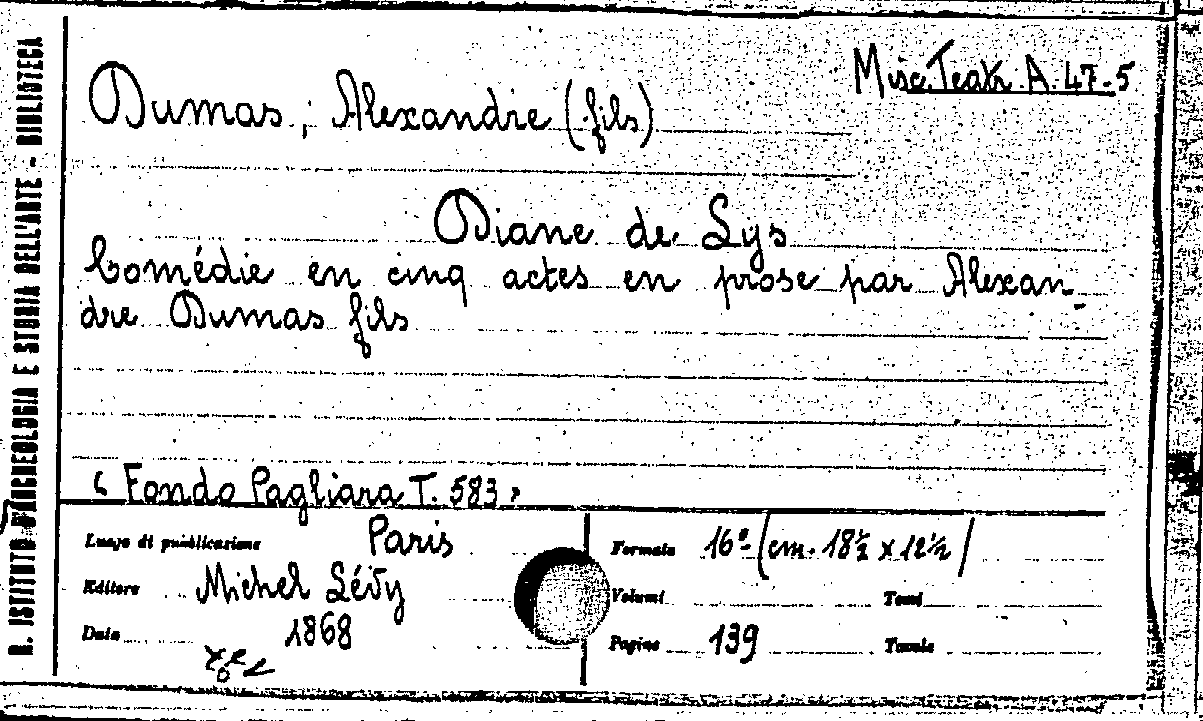 R. ISTITUTO D'ARCHEOLOGIA E STORIA DELL'ARTE - BIBLIOTECA
Misc. Teatr. A. 47-5
Dumas, Alexandre (fils)
Diane de Lys
Comédie en cinq actes en prose par Alexan-
dre Dumas fils
(Fondo Pagliara T. 583)
Luogo di pubblicazione Paris
Editore Michel Lévy
Data 1868
Formato 16º (cm. 18½ x 12½)
Volumi Tomi
Pagine 139 Tavole